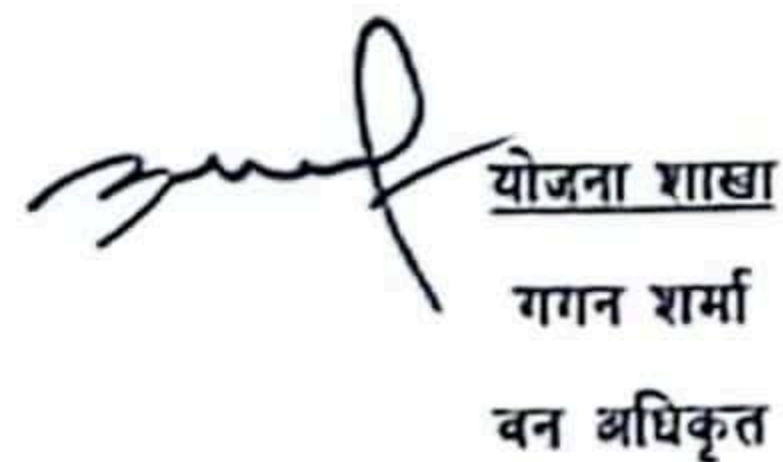 योजना शाखा
गगन शर्मा
वन अधिकृत